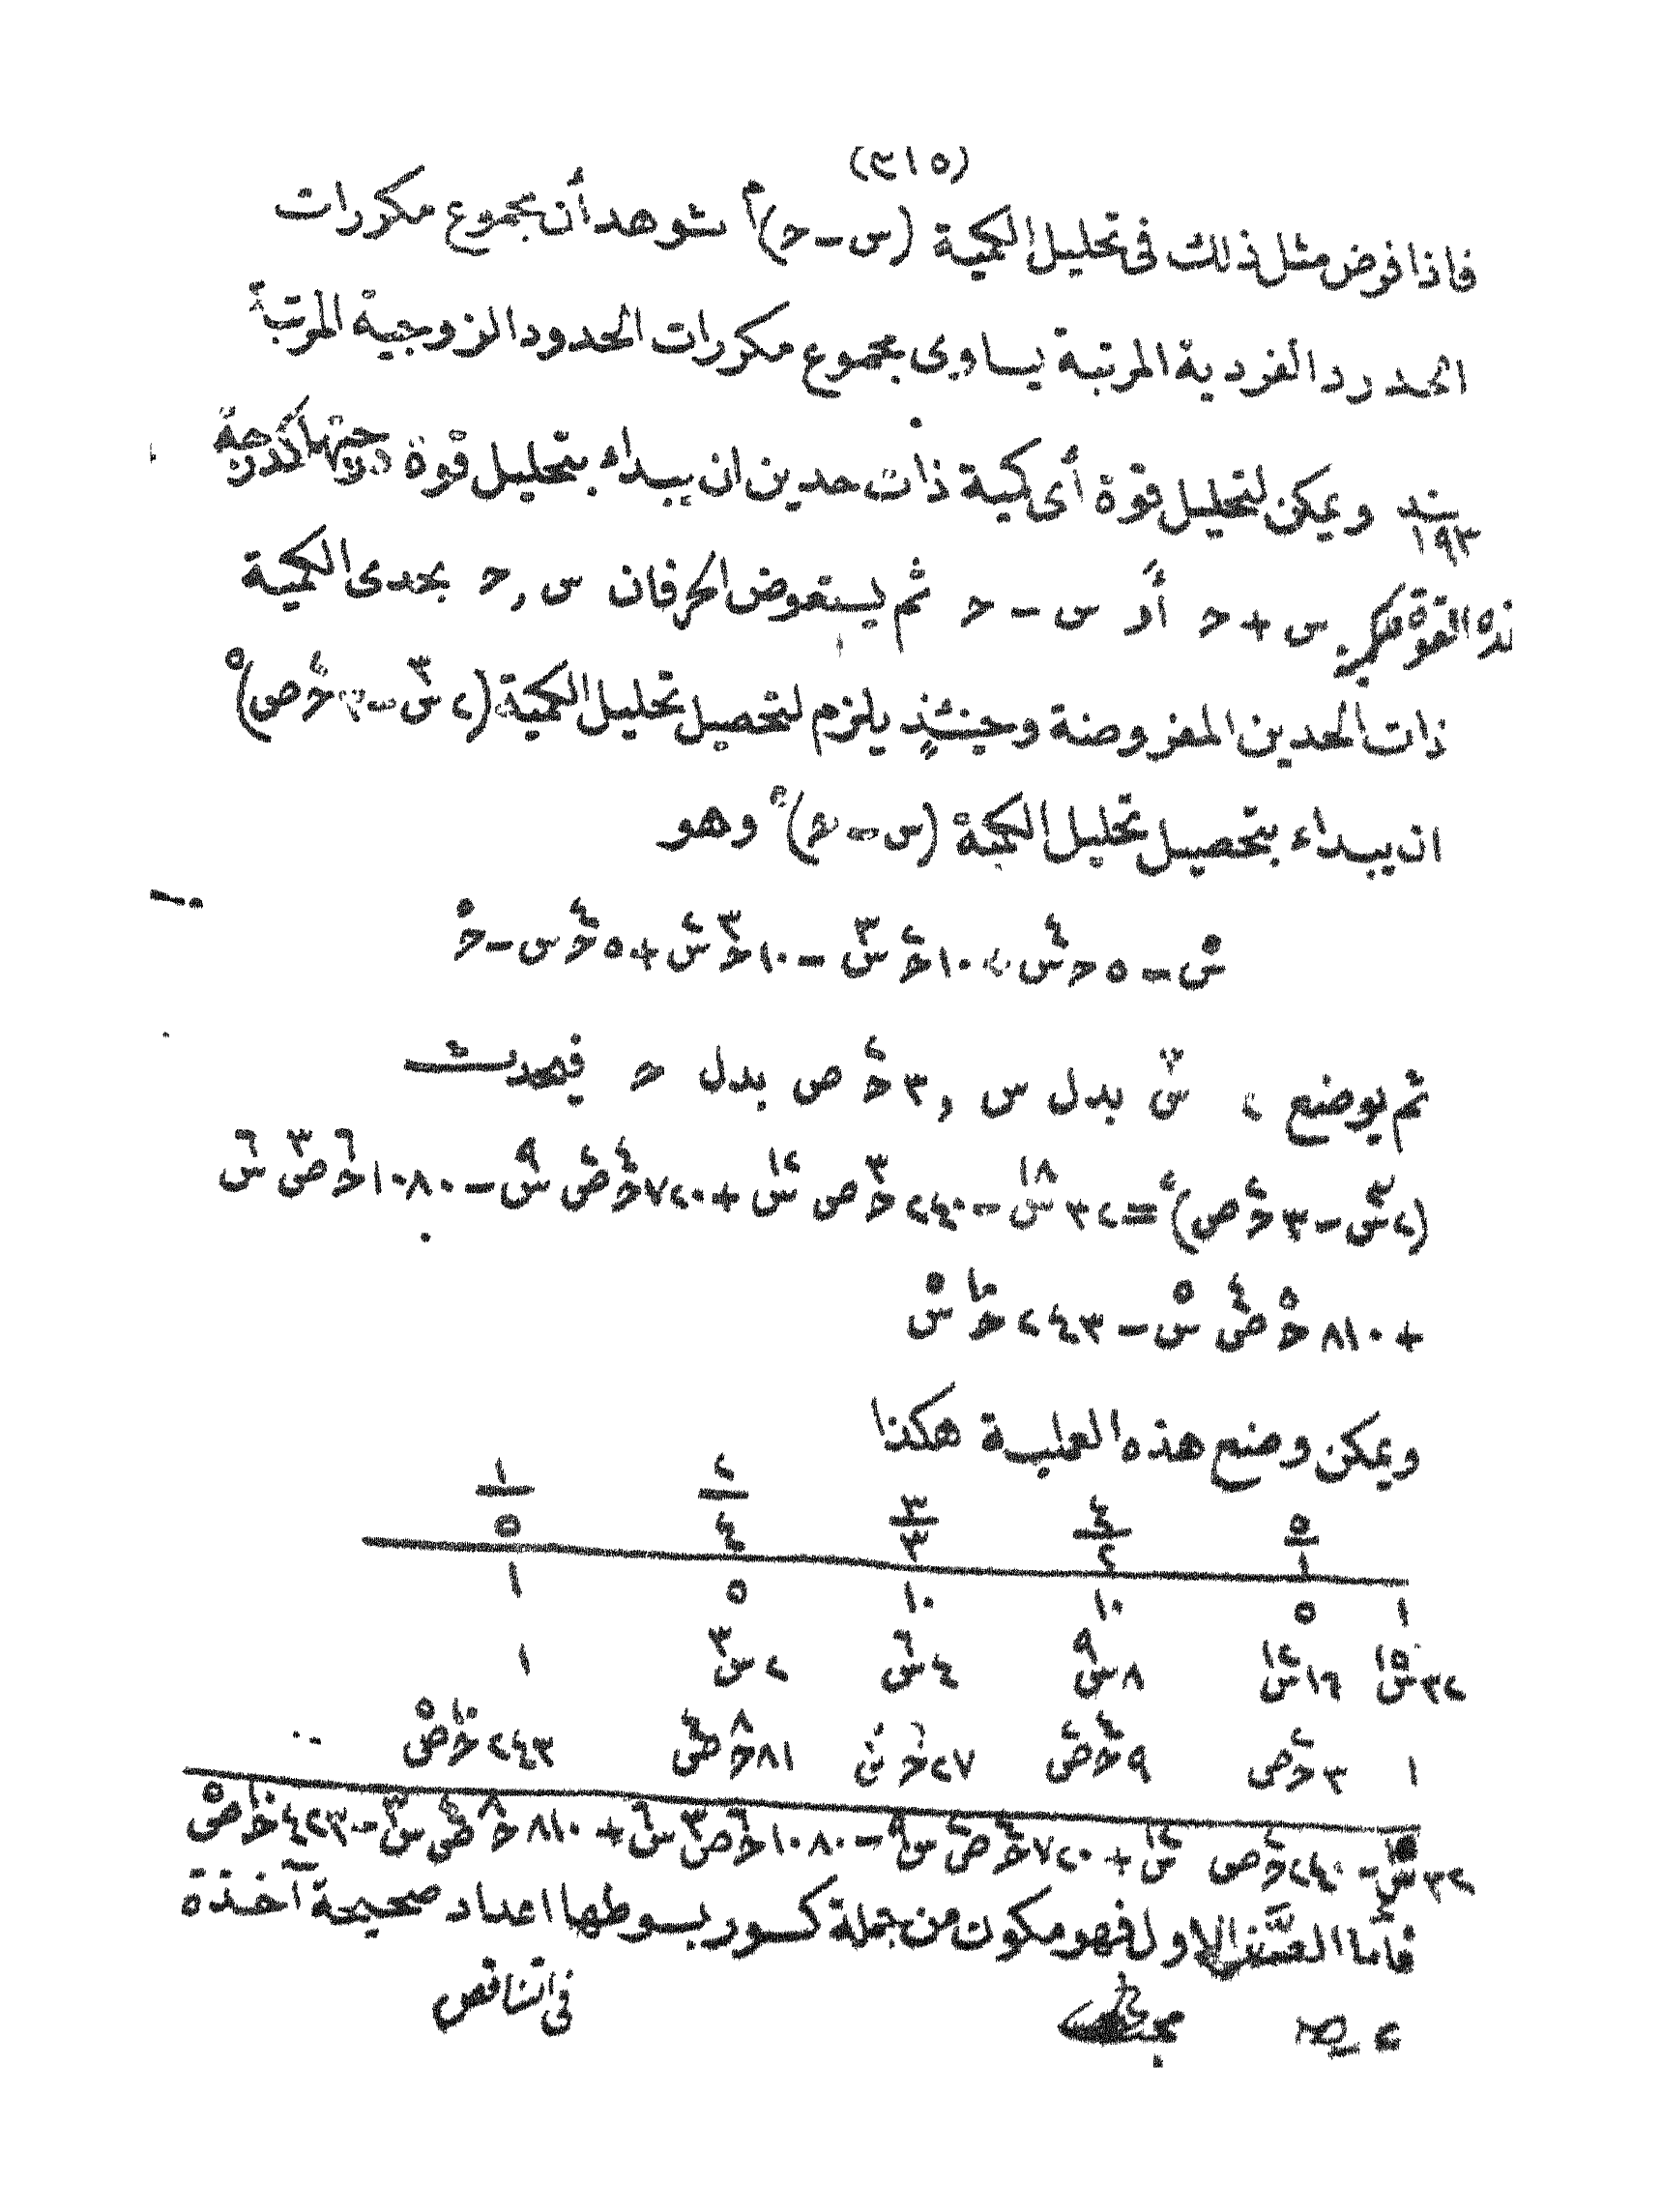 (٣١٥)
فاذا فرض مثل ذلك فى تحليل الكمية (س-ح)^م شوهد أن مجموع مكررات
الحدود الفردية المرتبة يساوى مجموع مكررات الحدود الزوجية المرتبة
بند ١٩٣ ويمكن لتحليل قوة أى كمية ذات حدين ان يبداء بتحليل قوة درجتها كدرجة
هذه القوة لكمية س+ح أو س-ح ثم يستعوض الحرفان س , ح بحدى الكمية
ذات الحدين المفروضة وحينئذ يلزم لتحصيل تحليل الكمية (٢س^٣-٣ح^٢ص)^٥
ان يبداء بتحصيل تحليل الكمية (س-ح)^٥ وهو
س^٥-٥ح س^٤+١٠ح^٢س^٣-١٠ح^٣س^٢+٥ح^٤س-ح^٥
ثم يوضع ٢س^٣ بدل س , ٣ح^٢ص بدل ح فيحدث
(٢س^٣-٣ح^٢ص)^٢=٣٢س^١٨-٢٤٠ح^٣ص س^١٢+٧٢٠ح^٤ص^٢س^٩-١٠٨٠ح^٦ص^٣س^٦
+٨١٠ح^٥ص^٤س^٥-٢٤٣ح^١٠س^٥
ويمكن وضع هذه العملية هكذا
٥/١ ٤/٢ ٣/٣ ٢/٤ ١/٥
١ ٥ ١٠ ١٠ ٥ ١
٣٢س^١٥ ١٦س^١٢ ٨س^٩ ٤س^٦ ٢س^٣ ١
١ ٣ح^٢ص ٩ح^٤ص^٢ ٢٧ح^٦ص^٣ ٨١ح^٨ص^٤ ٢٤٣ح^١٠ص^٥
٣٢س^١٥-٢٤٠ح^٢ص س^١٢+٧٢٠ح^٤ص^٢س^٩-١٠٨٠ح^٦ص^٣س^٦+٨١٠ح^٨ص^٤س^٣-٤٢٣ح^١٠ص^٥
فأما الصف الاول فهو مكون من جملة كسور بسوطها اعداد صحيحة آخذة
فى اتناقص